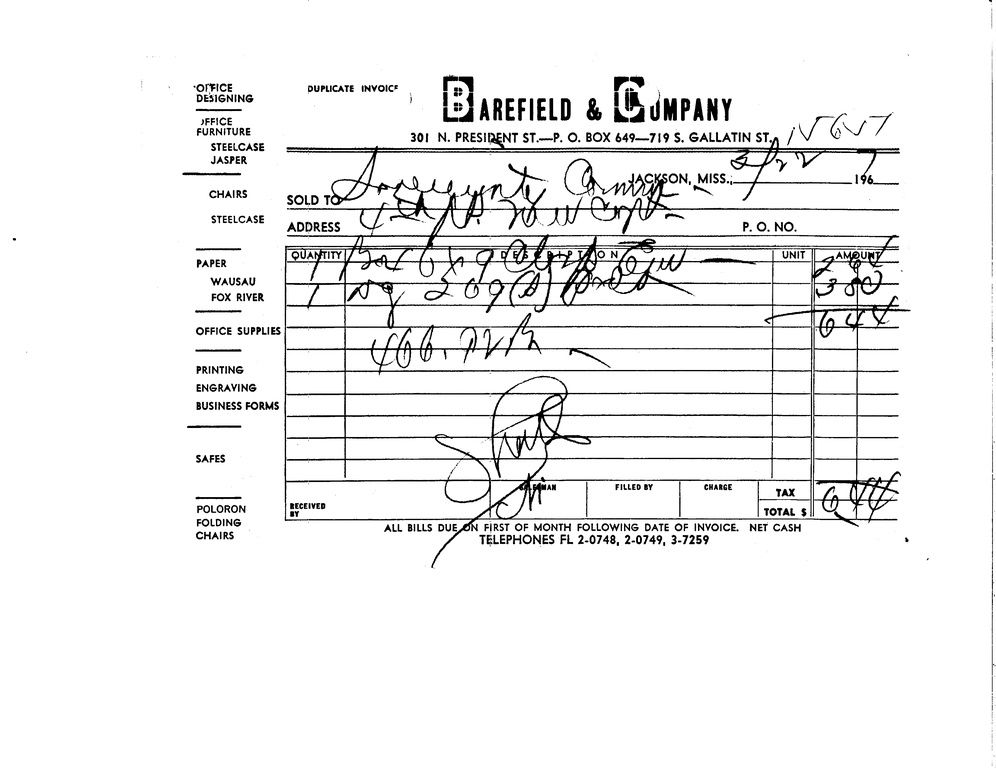 DUPLICATE INVOICE
BAREFIELD & COMPANY
301 N. PRESIDENT ST.—P. O. BOX 649—719 S. GALLATIN ST.
OFFICE
DESIGNING
OFFICE
FURNITURE
STEELCASE
JASPER
CHAIRS
STEELCASE
PAPER
WAUSAU
FOX RIVER
OFFICE SUPPLIES
PRINTING
ENGRAVING
BUSINESS FORMS
SAFES
POLORON
FOLDING
CHAIRS
3/22
JACKSON, MISS., 196 7
SOLD TO Sovereignty Comm
ADDRESS
P. O. NO.
QUANTITY DESCRIPTION UNIT AMOUNT
1 Box 6x9 Clasp Env 2 64
1 209 3 80
6 44
RECEIVED
BY
SALESMAN FILLED BY CHARGE
TAX
TOTAL $ 6 44
ALL BILLS DUE ON FIRST OF MONTH FOLLOWING DATE OF INVOICE. NET CASH
TELEPHONES FL 2-0748, 2-0749, 3-7259